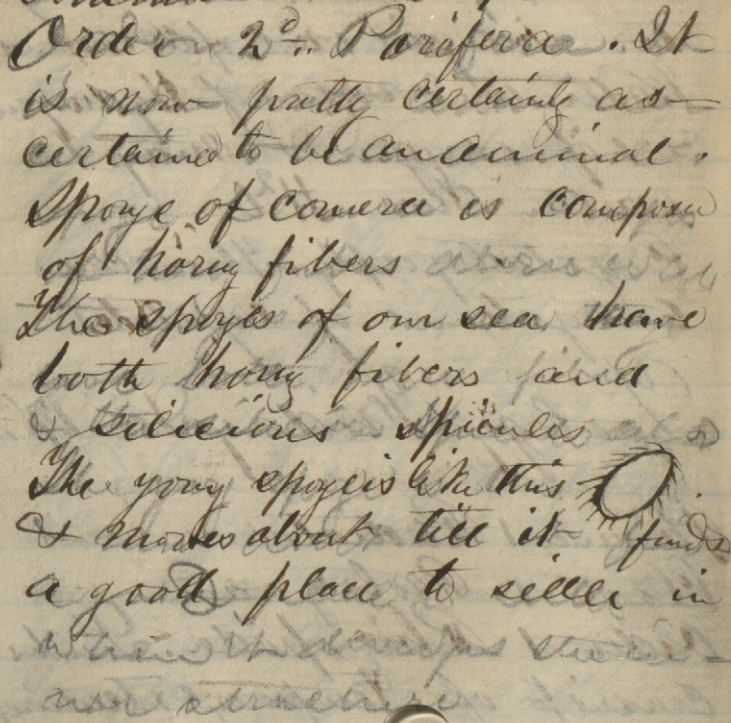 Order 2d. Porifera. It
is now pretty certainly as-
certained to be an animal.
Sponge of comerce is composed
of horny fibers
The sponges of our sea have
both horny fibers and
& silicious spicules
The young sponge is like this
& moves about till it finds
a good place to settle in
when it develops the
structure